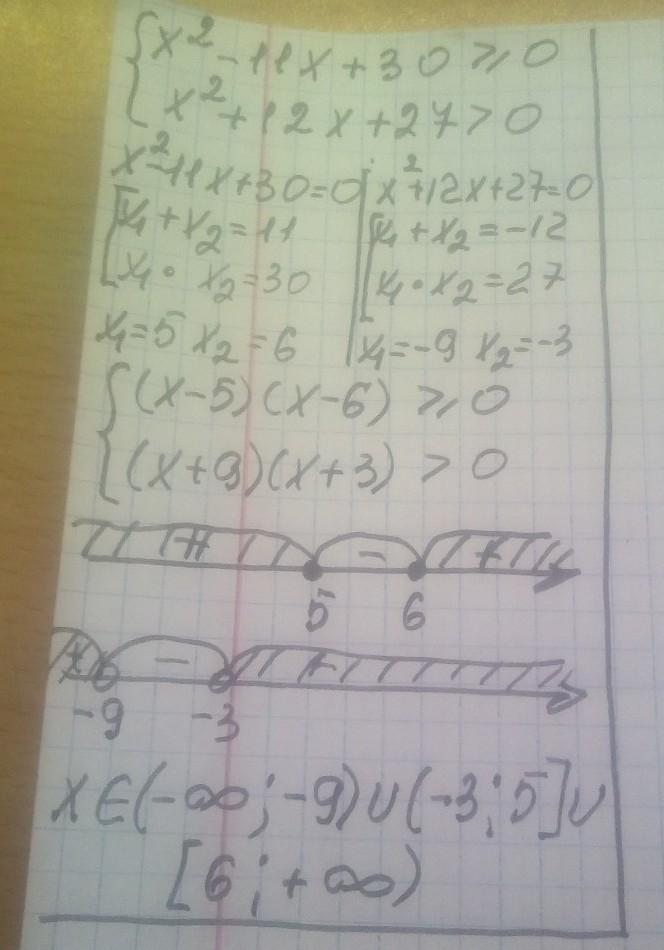 { x² - 11x + 30 ⩾ 0
x² + 12x + 27 > 0
x² - 11x + 30 = 0 | x² + 12x + 27 = 0
[ x₁ + x₂ = 11 | [ x₁ + x₂ = -12
x₁ · x₂ = 30 | x₁ · x₂ = 27
x₁ = 5 x₂ = 6 | x₁ = -9 x₂ = -3
{ (x-5)(x-6) ⩾ 0
(x+9)(x+3) > 0
+ - +
5 6
+ - +
-9 -3
x ∈ (-∞; -9) ∪ (-3; 5] ∪
[6; +∞)